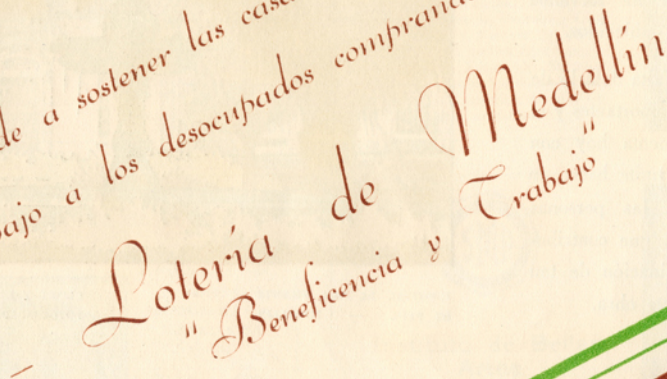 de a sostener las cas
bajo a los desocupados comprand
Lotería de Medellín
"Beneficencia y Trabajo"